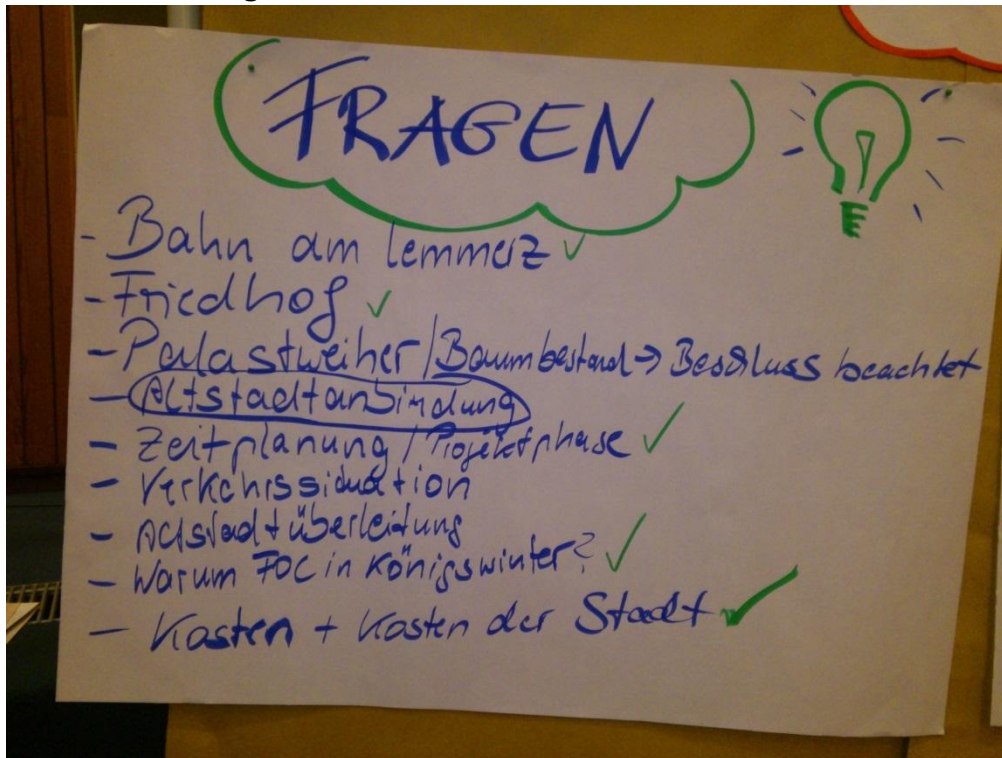 FRAGEN
- Bahn am Lemmerz ✓
- Friedhof ✓
- Palastweiher / Baumbestand → Beschluss beachtet
- Altstadtanbindung
- Zeitplanung / Projektphase ✓
- Verkehrssituation
- Altstadtüberleitung
- Warum FOC in Königswinter? ✓
- Kosten + Kosten der Stadt ✓